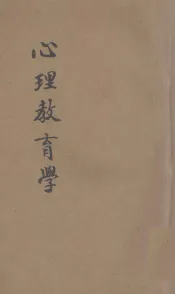 心理教育學